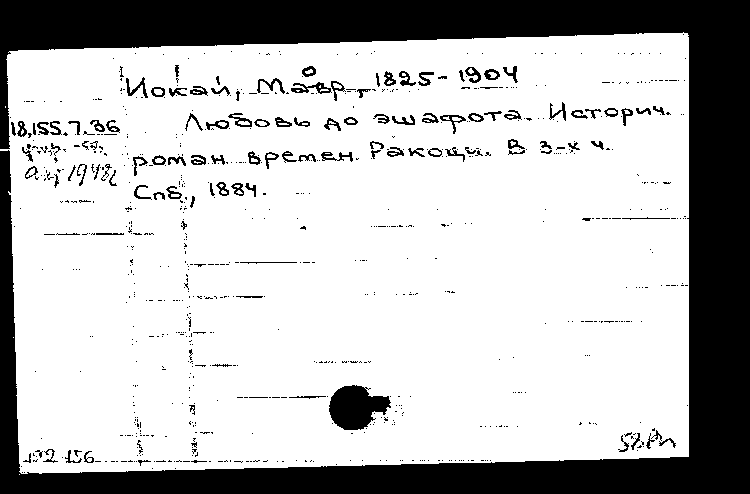 Иокай, Мавр, 1825-1904
18,155.7.36
Любовь до эшафота. Историч.
роман времен Ракоци. В 3-х ч.
Спб., 1884.
192 156